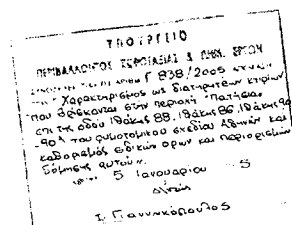 ΥΠΟΥΡΓΕΙΟ
ΠΕΡΙΒΑΛΛΟΝΤΟΣ ΧΩΡΟΤΑΞΙΑΣ & ΔΗΜ. ΕΡΓΩΝ
Γ 838/2005
Χαρακτηρισμός ως διατηρητέων κτιρίων
που βρίσκονται στην περιοχή Πατήσια
επι της οδού Ιθάκης 88, Ιθάκης 86, Ιθάκης 90
-90α του ρυμοτομικού σχεδίου Αθηνών και
καθορισμός ειδικών όρων και περιορισμών
δόμησης αυτών.
5 Ιανουαρίου 5
Ι. Γιαννακόπουλος